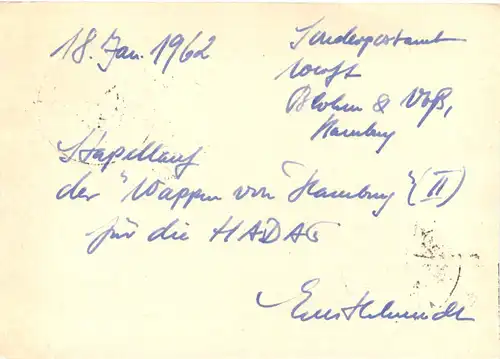 18. Jan. 1962
Sonderpostamt
Werft
Blohm & Voß,
Hamburg
Stapellauf
der "Wappen von Hamburg" (II)
für die HADAG